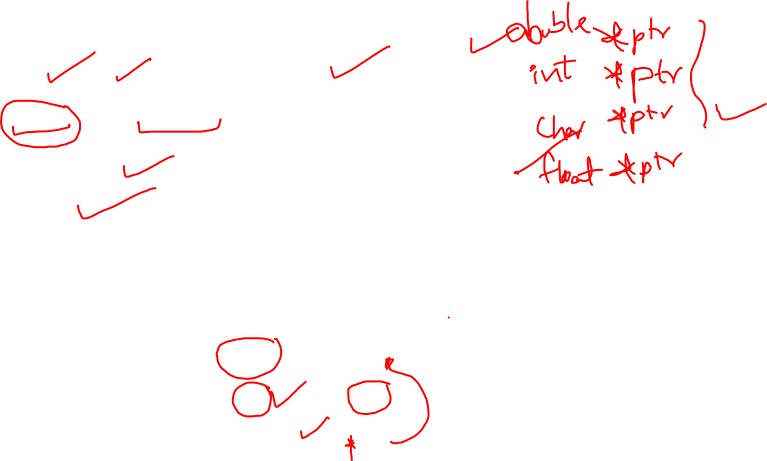 double *ptr
int *ptr
char *ptr
float *ptr
*